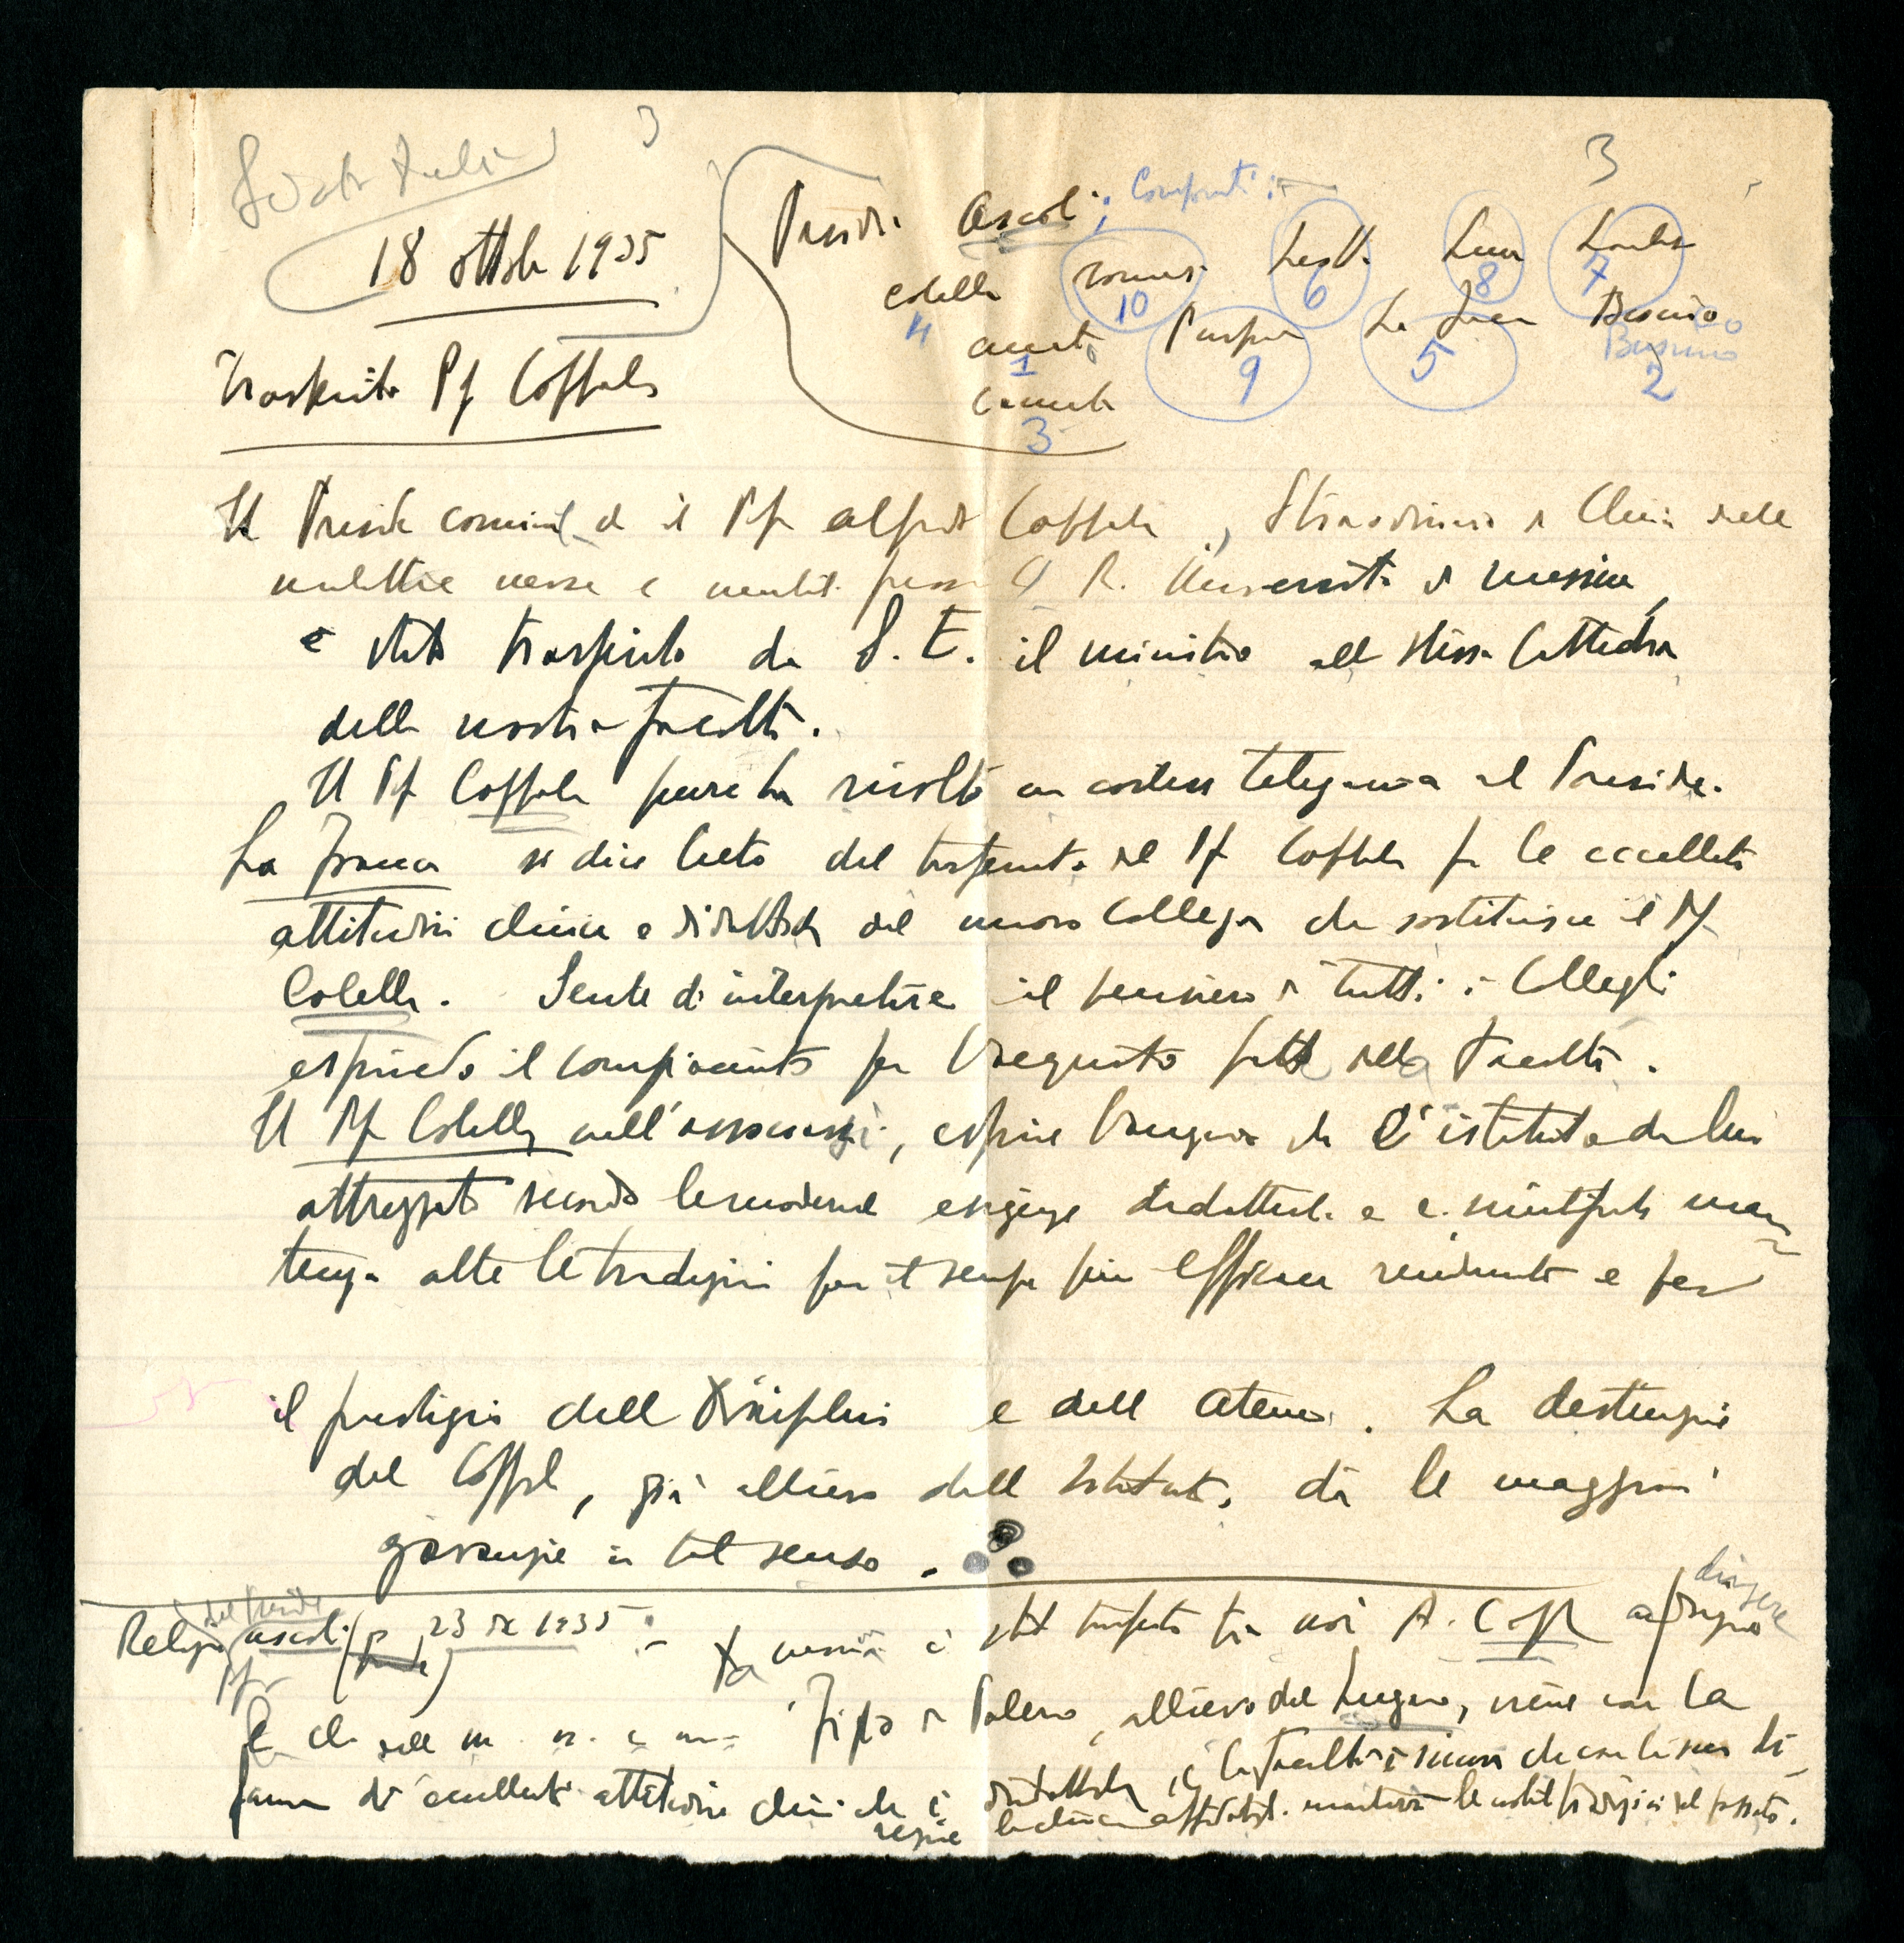 3
3
18 ottobre 1935
Preside Ascoli; Componenti:
Colella
4
10
6
8
7
1
Purpura
9
La Franca
5
Businco
Businco
2
3
Trasferimento Pf Coppola
Il Preside comunica che il Pf Alfredo Coppola, Straordinario di Clinica delle
malattie nervose e mentali presso la R. Università di Messina,
è stato trasferito da S. E. il ministro alla stessa Cattedra
della nostra facoltà.
Il Pf Coppola pure ha rivolto un cortese telegramma al Preside.
La Franca si dice lieto del trasferimento del Pf Coppola per le eccellenti
attitudini cliniche e didattiche del nuovo Collega che sostituisce il Pf
Colella. Sente di interpretare il pensiero di tutti i Colleghi
esprimendo il compiacimento per l'acquisto fatto dalla Facoltà.
Il Pf Colella nell'associarsi, esprime l'augurio che l'istituto da lui
attrezzato secondo le moderne esigenze didattiche e scientifiche man
tenga alte le tradizioni per il sempre più efficace rendimento e per
il prestigio della Disciplina e dell Ateneo. La destinazione
del Coppola, già allievo dell Istituto, dà le maggiori
garanzie in tal senso.
Relazione del Preside Ascoli 23 1935 :- Da Messina è stato trasferito tra noi A. Coppola a dirigere
la cl. delle m. n. e m. Figlio di Palermo, allievo del Lugaro, viene con la
fama di eccellenti attitudini cliniche e didattiche, e la Facoltà è sicura che con la sua di
rezione la clinica affidatagli manterrà le nobili tradizioni del passato.